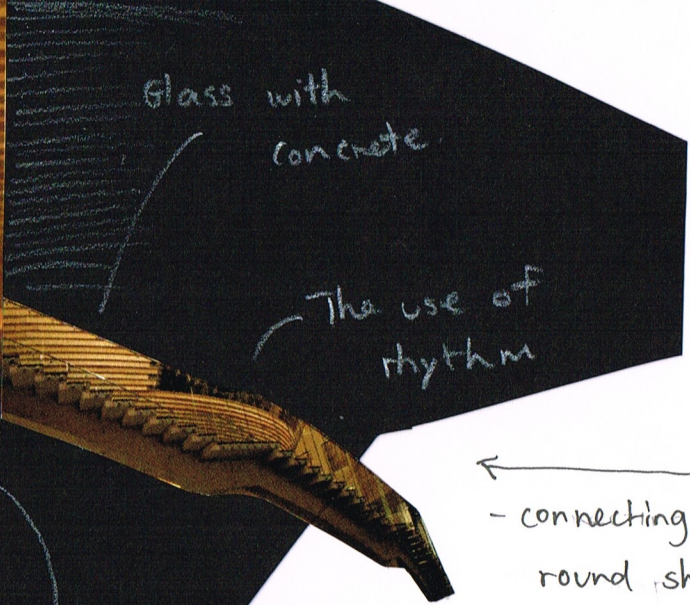 Glass with
concrete
The use of
rhythm
- connecting
round sh